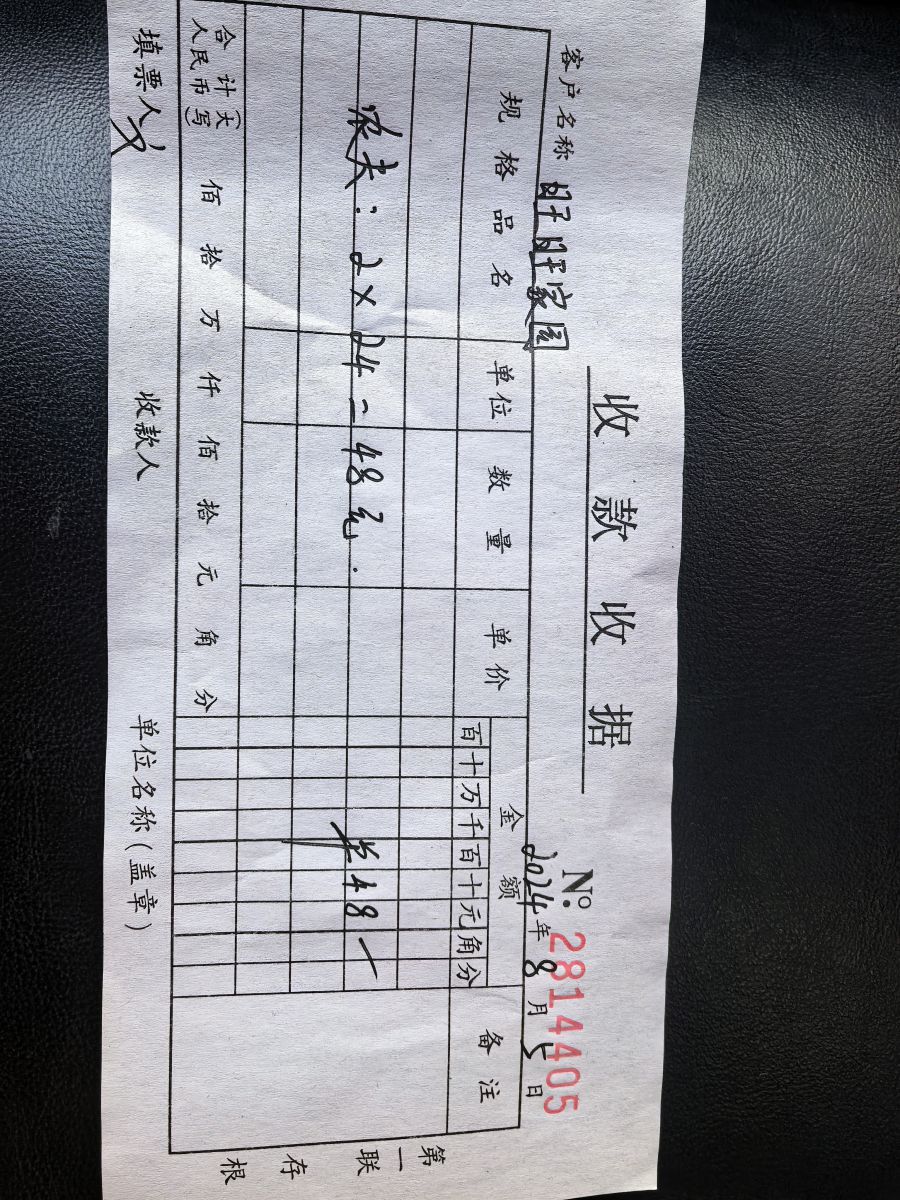 收款收据
№: 2814405
客户名称 旺旺家园 2024年8月5日
规格品名 单位 数量 单价 金额 备注
百十万千百十元角分
农夫：2×24=48元. ¥48—
合计人民币（大写） 佰拾万仟佰拾元角分
填票人 收款人 单位名称(盖章)
第一联存根